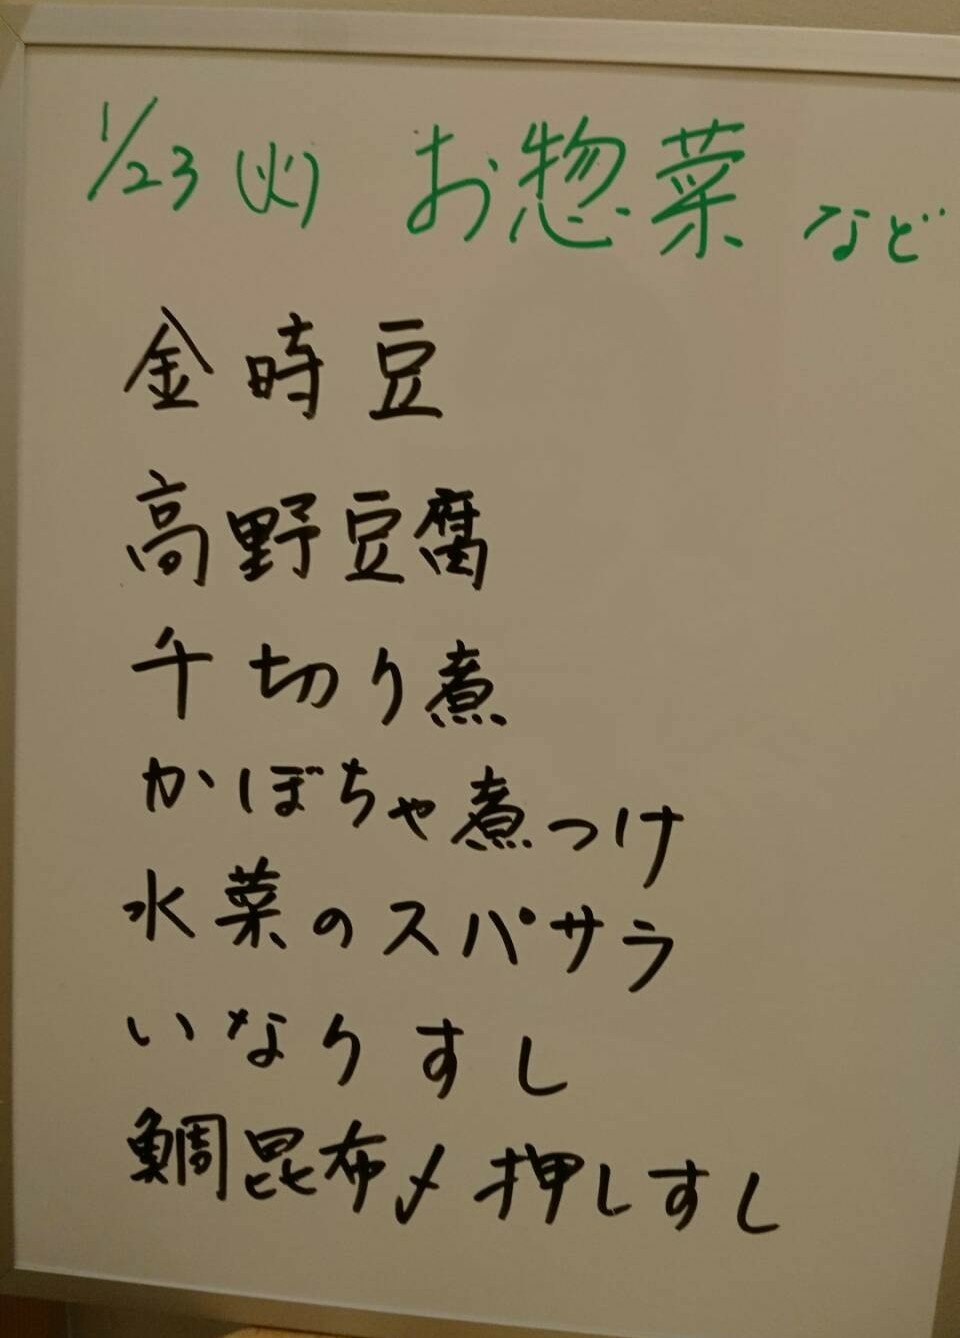 1/23(火) お惣菜など
金時豆
高野豆腐
千切り煮
かぼちゃ煮つけ
水菜のスパサラ
いなりすし
鯛昆布〆押しすし